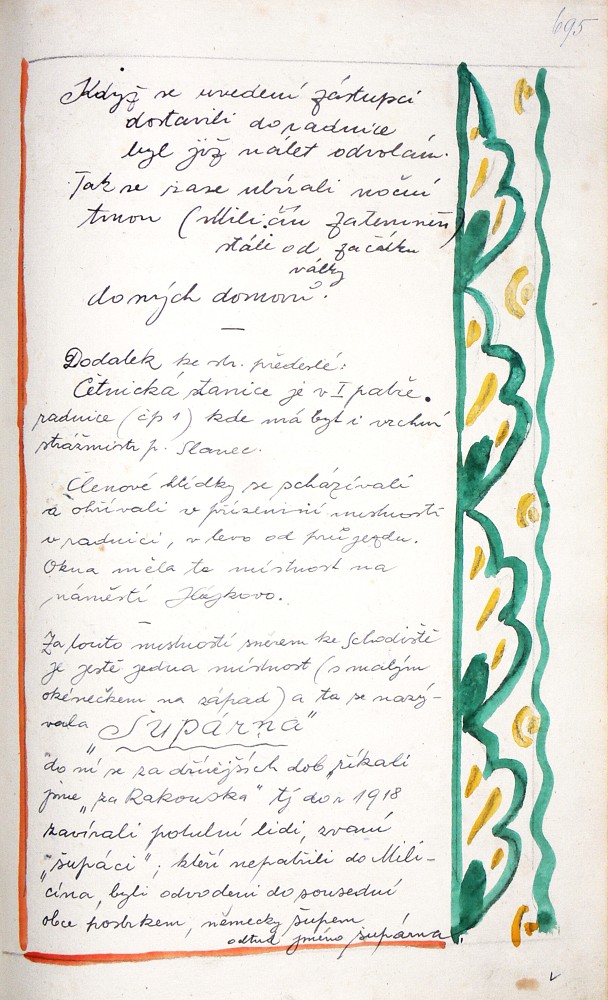 695
Když se uvedení zástupci
dostavili do radnice
byl již nálet odvolán.
Tak se zase ubírali noční
tmou (Miličín zatemněn)
stáli od začátku
války
do svých domovů.
—
Dodatek ke str. předešlé:
Četnická stanice je v I patře
radnice (čp 1) kde má byt i vrchní
strážmistr p. Slanec.
Členové hlídky se scházívali
a ohřívali v přízemní místnosti
v radnici, v levo od průjezdu.
Okna měla ta místnost na
náměstí Hájkovo.
Za touto místností směrem ke schodiště
je ještě jedna místnost (s malým
okénečkem na západ) a ta se nazý-
vala „Šupárna"
do ní se za dřívějších dob, říkali
jsme „za Rakouska" tj do r 1918
zavírali potulní lidi, zvaní
„šupáci"; kteří nepatřili do Mili-
čína, byli odvedeni do sousední
obce postrkem, německy šupem
odtud jméno šupárna.